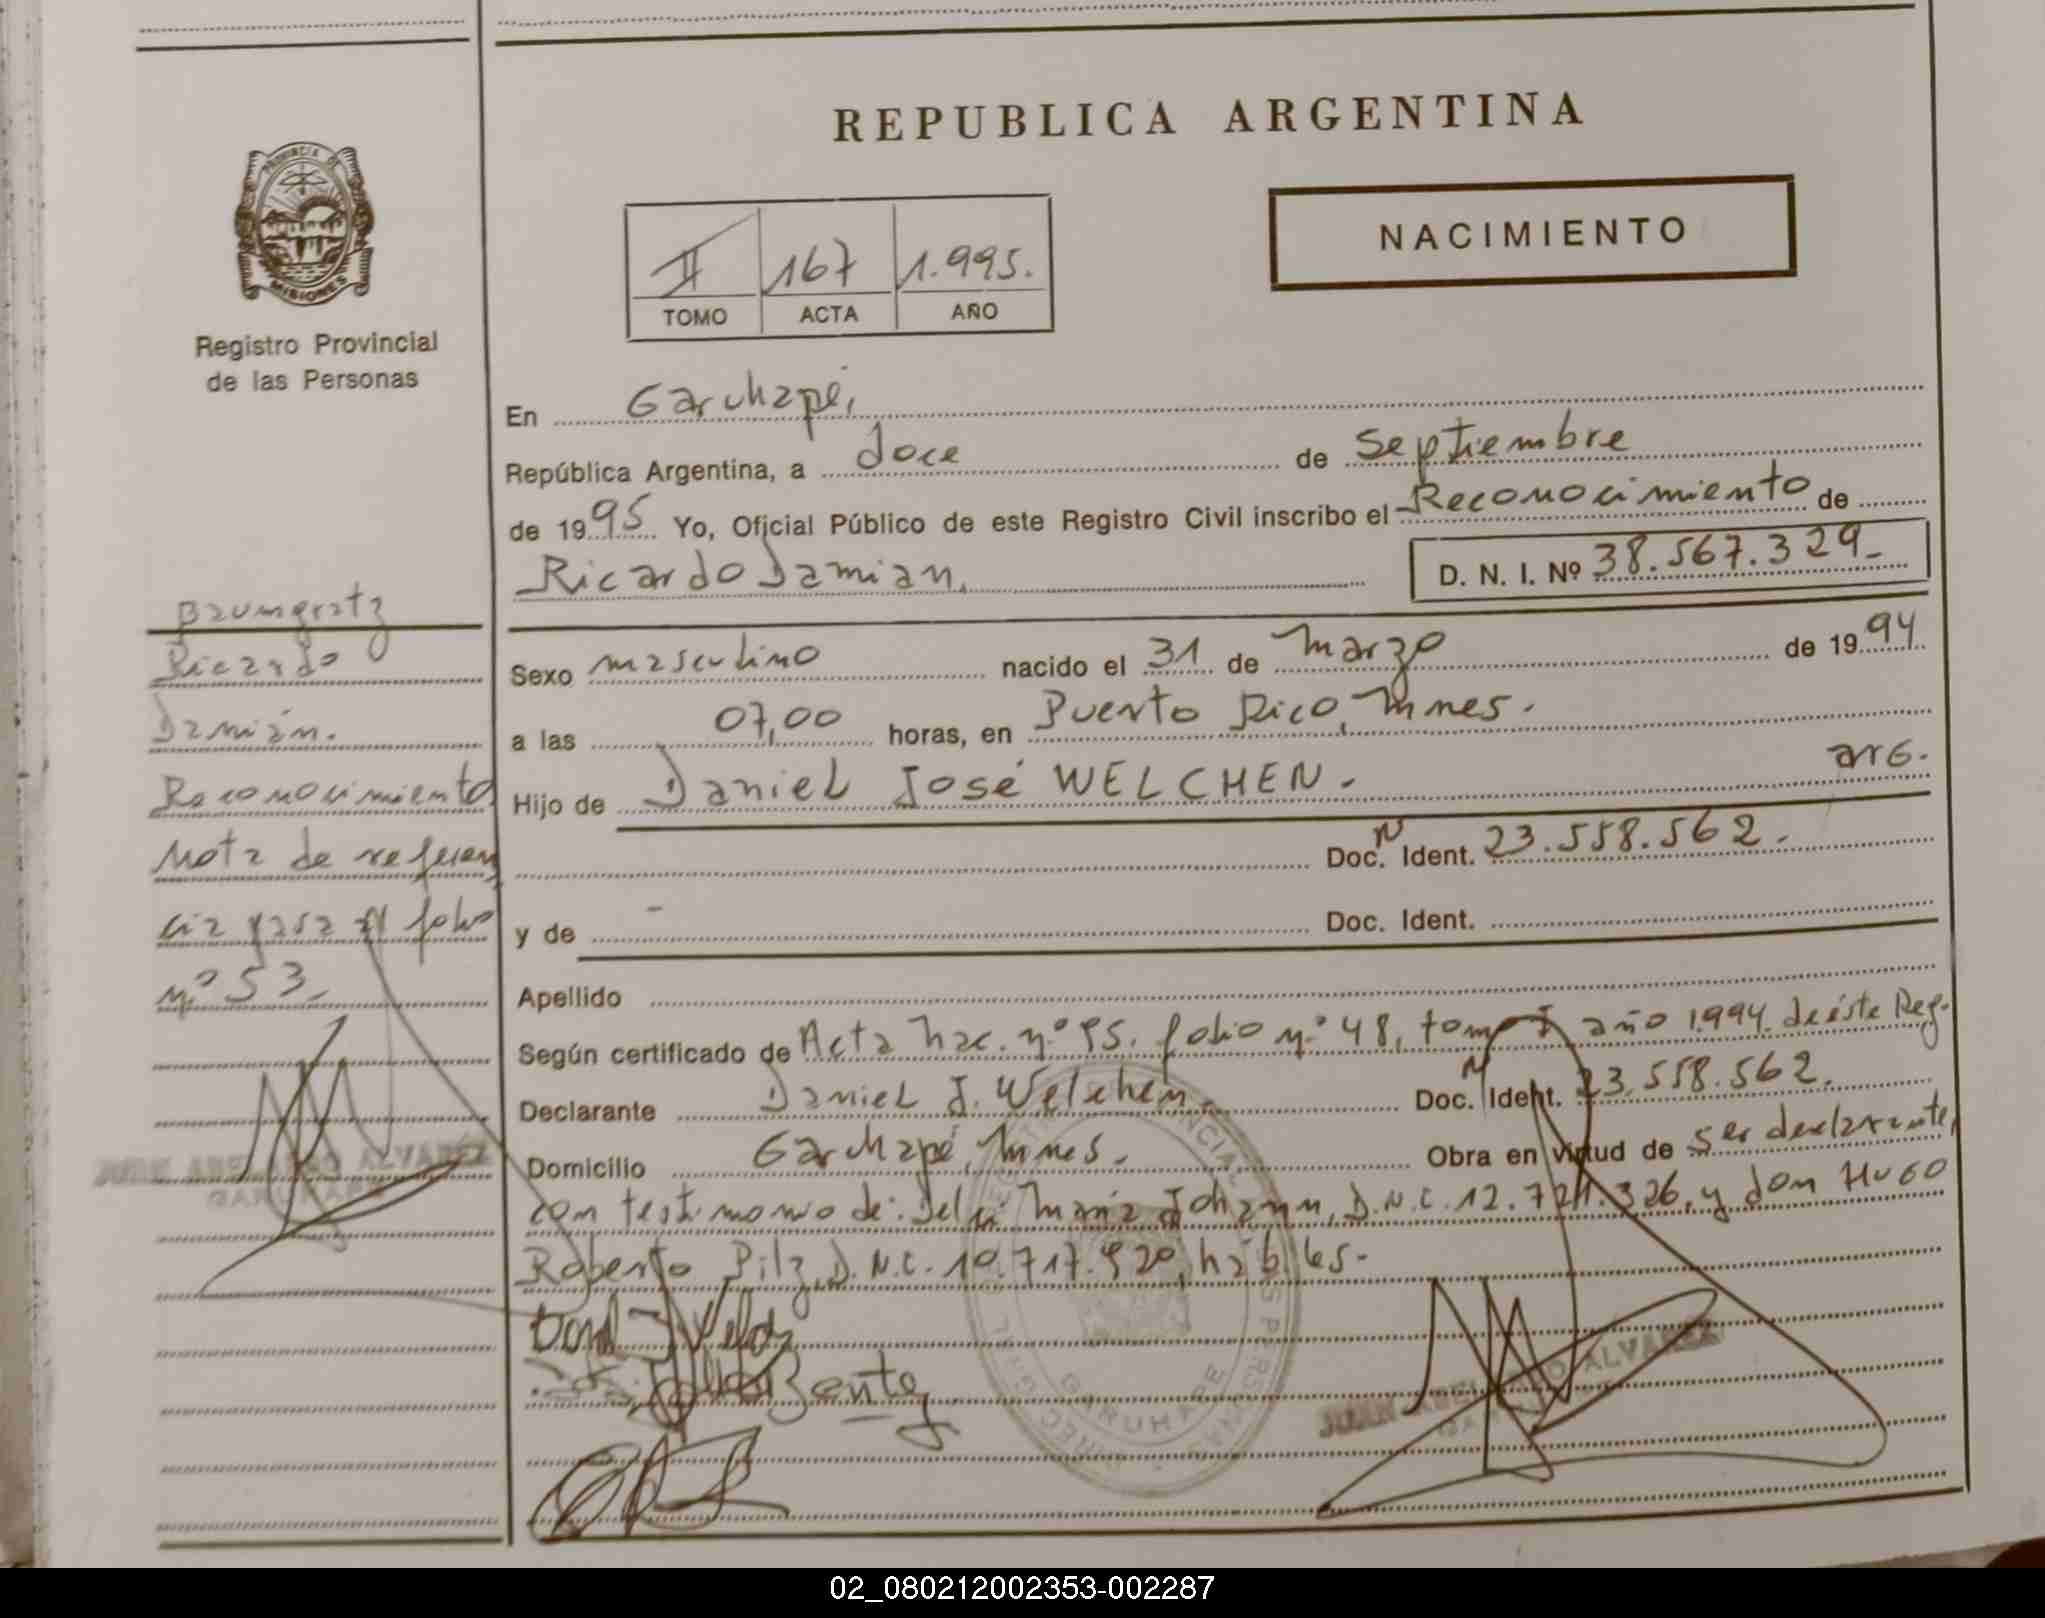 REPUBLICA ARGENTINA
PROVINCIA DE
MISIONES
Registro Provincial
de las Personas
II 167 1.995.
TOMO ACTA AÑO
NACIMIENTO
En Garuhapé,
República Argentina, a doce de Septiembre
de 1995 Yo, Oficial Público de este Registro Civil inscribo el Reconocimiento de
Ricardo Damian, D. N. I. Nº 38.567.329-
Sexo masculino nacido el 31 de Marzo de 1994
a las 07,00 horas, en Puerto Rico, Mnes.
Hijo de Daniel José WELCHEN. arg.
Doc. N Ident. 23.558.562.
y de - Doc. Ident.
Apellido
Según certificado de Acta Nac. nº 95. folio nº 48, tomo I año 1.994. de éste Reg.
Declarante Daniel J. Welchen. Doc. N Ident. 23.558.562.
Domicilio Garuhapé, Mnes. Obra en virtud de ser declarante,
con testimonio de: María Johann, D.N.I. 12.721.326, y don Hugo
Roberto Pilz, D.N.I. 10.717.920, hábiles.
Baumgratz
Ricardo
Damián.
Reconocimiento
Nota de referen
cia pasa al folio
nº 53.
JUAN ABELARDO ALVAREZ
GARUHAPE
GARUHAPE
JUAN ABELARDO ALVAREZ
02_080212002353-002287